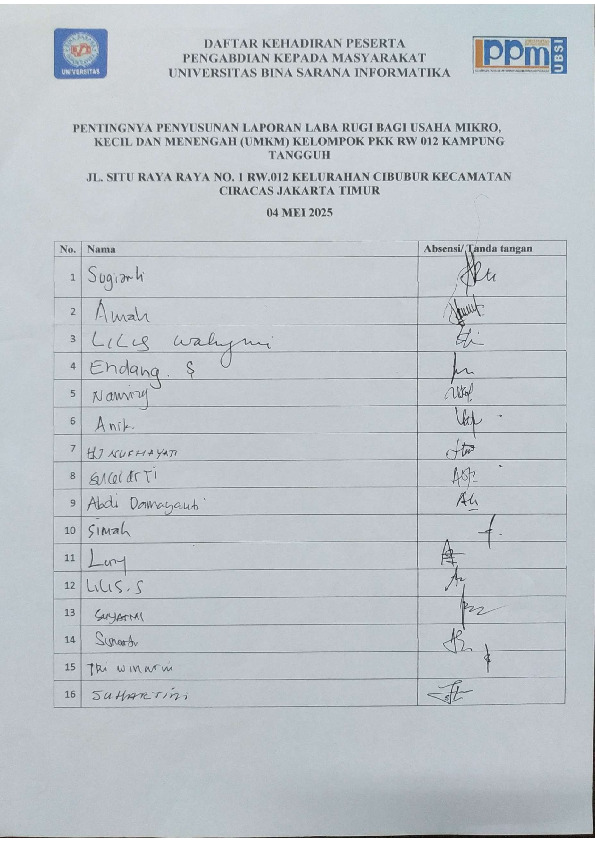 DAFTAR KEHADIRAN PESERTA
PENGABDIAN KEPADA MASYARAKAT
UNIVERSITAS BINA SARANA INFORMATIKA
UNIVERSITAS
lppm
UBSI
PENTINGNYA PENYUSUNAN LAPORAN LABA RUGI BAGI USAHA MIKRO,
KECIL DAN MENENGAH (UMKM) KELOMPOK PKK RW 012 KAMPUNG
TANGGUH
JL. SITU RAYA RAYA NO. 1 RW.012 KELURAHAN CIBUBUR KECAMATAN
CIRACAS JAKARTA TIMUR
04 MEI 2025
No. Nama Absensi/ Tanda tangan
1 Sugiarti
2 Amah
3 LiLis wahyuni
4 Endang. S
5
6 Anik.
7 HJ NURHAYATI
8
9 Abdi Damayanti
10 Simah
11
12 LiLiS.S
13
14
15 TRi winarni
16 SUHARTini